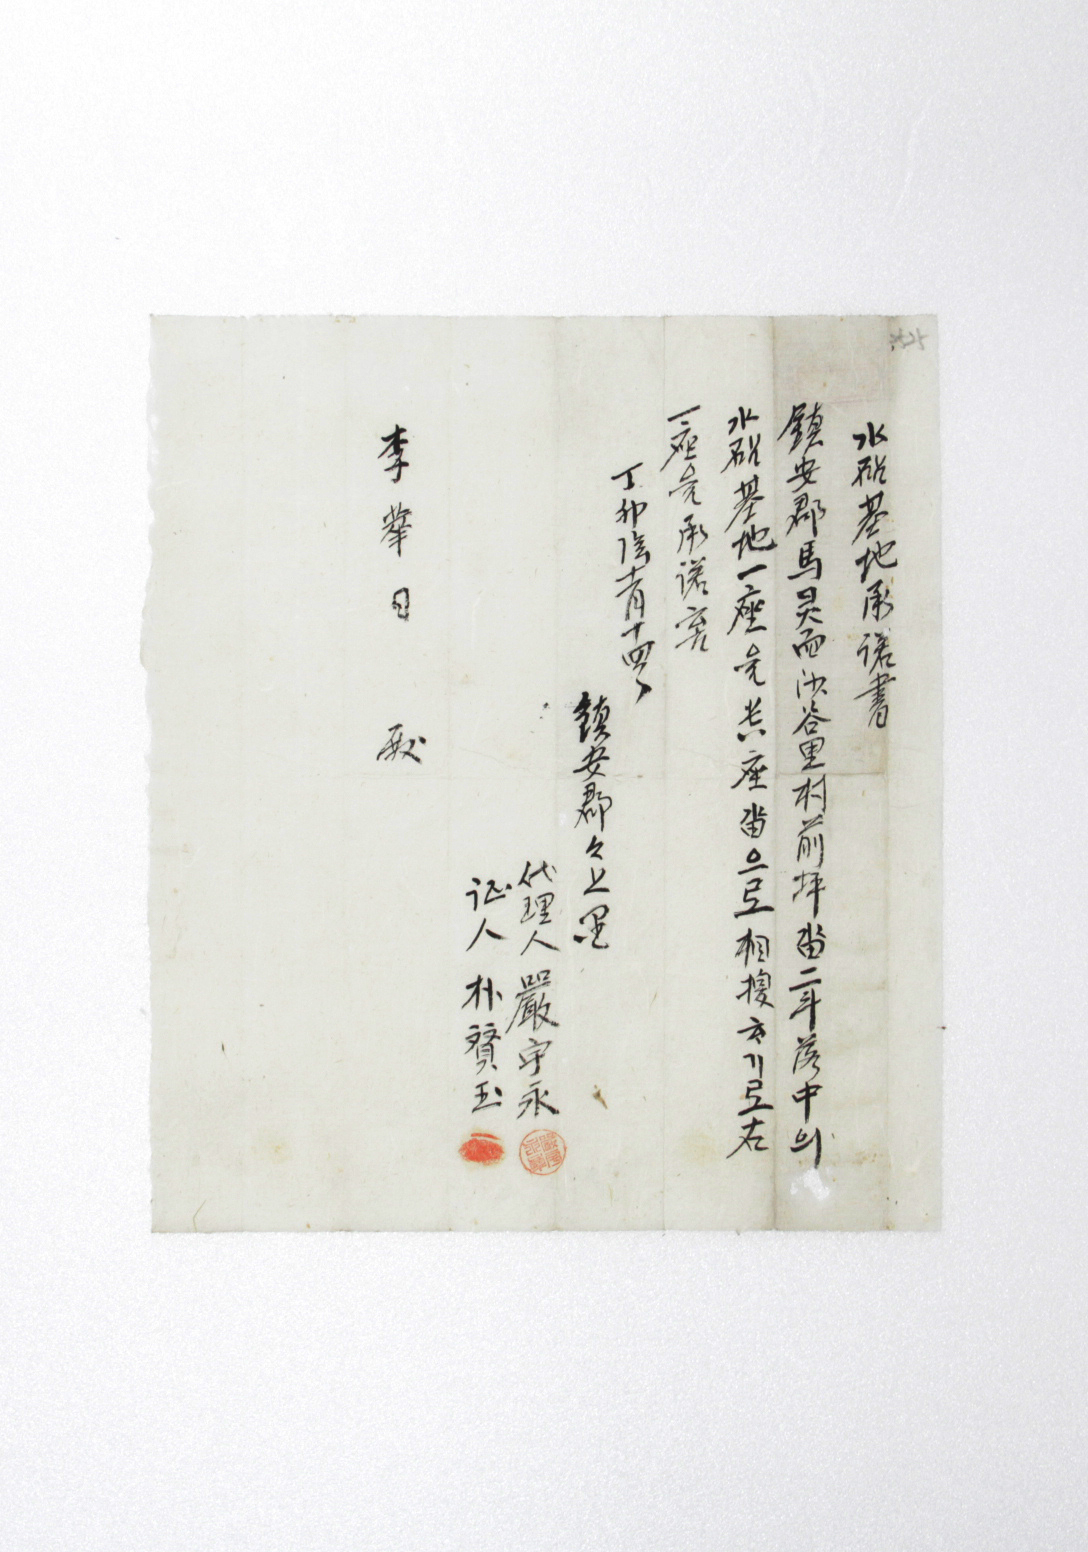 水砧基地承諾書
鎭安郡馬灵面沙谷里村前坪畓二斗落中의
水砧基地一座을 其座畓으로相換하기로右
一座을承諾홈
丁卯陰十一月十四日
鎭安郡々上里
代理人 嚴宇永
証人 朴贊玉
李華日 殿